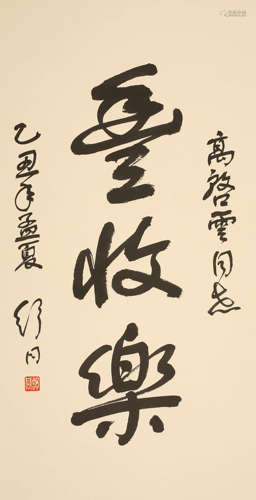 高啓雲同志
豐收樂
乙丑年孟夏 舒同